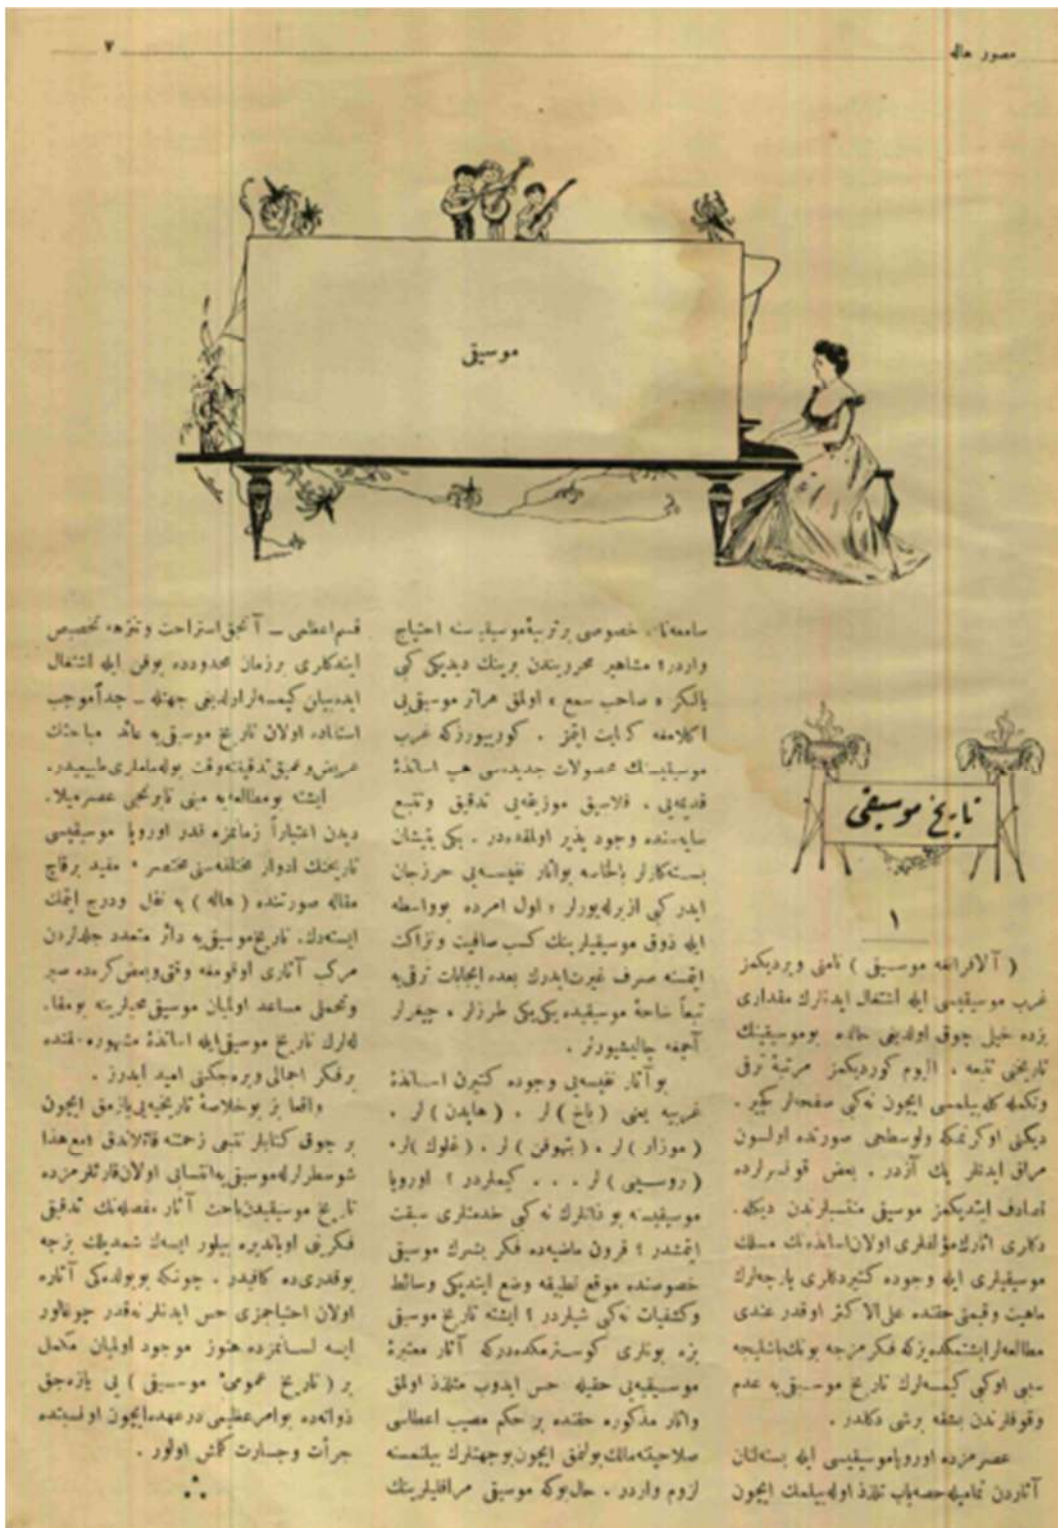 مصور هاله
٧
موسیقی
تاریخ موسیقی
١
( آلافرانغه موسیقی ) نامنی ویردیکمز
غرب موسیقیسی ایله اشتغال ایدنلرك مقداری
بزده خیلی چوق اولدیغی حالده بوموسیقینك
تاریخنی تتبعه ، الیوم کوردیکمز مرتبهٔ ترقی
وتکمله کله بیلمسی ایچون نه کبی صفحه‌لر
دیکنی اوکرنمکه ولوسطحی صورتده اولسون
مراق ایدنلر پك آزدر . بعض قونسرلرده
تصادف ایتدیکمز موسیقی منتسبلرندن دیکله‌
دکلری اثارك مؤلفلری اولان اساتذه‌نك مسلك
موسیقیلری ایله وجوده کتیردکلری پارچه‌لرك
ماهیت وقیمتی حقنده علی الاکثر اوقدر عندی
مطالعه‌لر ایشتمکده‌یزکه فکرمزجه بونك باشلیجه
سببی اوکبی کیمسه‌لرك تاریخ موسیقی‌یه عدم
وقوفلرندن بشقه برشی دکلدر .
عصرمزده اوروپا موسیقیسی ایله بسته‌لنان
آثاردن تمامیله حصه‌یاب تلذذ اوله‌بیلمك ایچون
خصوصی بر تربیهٔ موسیقیه‌سنه احتیاج
واردر؛ مشاهیر محرریندن برینك دیدیکی کبی
یالکز « صاحب سمع » اولمق هراثر موسیقی‌یی
اکلامغه کفایت ایتمز . کوریيورزکه غرب
موسیقیسنك محصولات جدیده‌سی هپ اساتذهٔ
قدیمه‌یی ، قلاسیق موزیقه‌یی تدقیق وتتبع
سایه‌سنده وجود پذیر اولمقده‌در . یکی یتیشان
بسته‌کارلر بالخاصه بوآثار نفیسه‌یی حرزجان
ایدر کبی ازبرله‌یورلر ؛ اول امرده بوواسطه
ایله ذوق موسیقیلرینك کسب صافیت ونزاکت
ایتمسنه صرف غیرت ایدرك بعده ایجابات ترقی‌یه
تبعاً ساحهٔ موسیقیده یکی یکی طرزلر ، چیغرلر
آچمغه چالیشیورلر .
بو آثار نفیسه‌یی وجوده کتیرن اساتذهٔ
غربیه یعنی ( باخ ) لر ، ( هایدن ) لر ،
( موزار ) لر ، ( بتهوفن ) لر ، ( غلوك ) لر،
( روسینی ) لر . . . کیملردر ؟ اوروپا
موسیقیسنه بو ذاتلرك نه کبی خدمتلری سبقت
ایتمشدر ؟ قرون ماضیه‌ده فکر بشرك موسیقی
خصوصنده موقع تطبیقه وضع ایتدیکی وسائط
وکشفیات نه‌کبی شیلردر ؟ ایشته تاریخ موسیقی
بزه بونلری کوسترمکده‌درکه آثار معتبرهٔ
موسیقیه‌یی حقیله حس ایدوب متلذذ اولمق
واثار مذکوره حقنده بر حکم مصیب اعطاسی
صلاحیتنه مالك بولنمق ایچون بوجهتلرك بیلنمسنه
لزوم واردر . حال‌بوکه موسیقی مراقلیلرینك
قسم اعظمی ـ آنجق استراحت وتنزهه تخصیص
ایتدکلری بر زمان محدودده بوفن ایله اشتغال
ایده‌بیلن کیمسه‌لر اولدیغی جهتله ـ جداً موجب
استفاده اولان تاریخ موسیقی‌یه عائد مباحثك
عریض وعمیق تدقیقنه وقت بوله‌مامه‌لری طبیعیدر.
ایشته بو مطالعه‌یه مبنی عصر میلا‌
دیدن اعتباراً زمانمزه قدر اوروپا موسیقیسی
تاریخنك ادوار مختلفه‌سنی مختصر ، مفید برقاچ
مقاله صورتنده ( هاله ) یه نقل ودرج ایتمك
ایسته‌دك. تاریخ موسیقی‌یه دائر متعدد جلدلردن
مرکب آثاری اوقومغه وقتی وبعض کره‌ده صبر
وتحملی مساعد اولمایان موسیقی محبلرینه بومقا‌
له‌لرك تاریخ موسیقی ایله اساتذهٔ مشهوره حقنده
بر فکر اجمالی ویره‌جکنی امید ایدرز .
واقعا بز بو خلاصهٔ تاریخیه‌یی یازمق ایچون
بر چوق کتابلر تتبعی زحمتنه قاتلاندق ؛ مع هذا
شو سطرلرله موسیقی‌یه انتسابی اولان قارئلرمزده
تاریخ موسیقیدن باحث آثار مفصله‌نك تدقیق
فکرینی اویاندیره بیلور ایسه‌ك شمدیلك بزجه
بوقدری‌ده کافیدر . چونکه بویولده‌کی آثاره
اولان احتیاجمزی حس ایدنلر نه‌قدر چوغالور
ایسه لسانمزده هنوز موجود اولمایان مکمل
بر ( تاریخ عمومیٔ موسیقی ) یی یازه‌جق
ذواته‌ده بو امر عظیمی درعهده ایچون اونسبتده
جرأت وجسارت کلمش اولور .